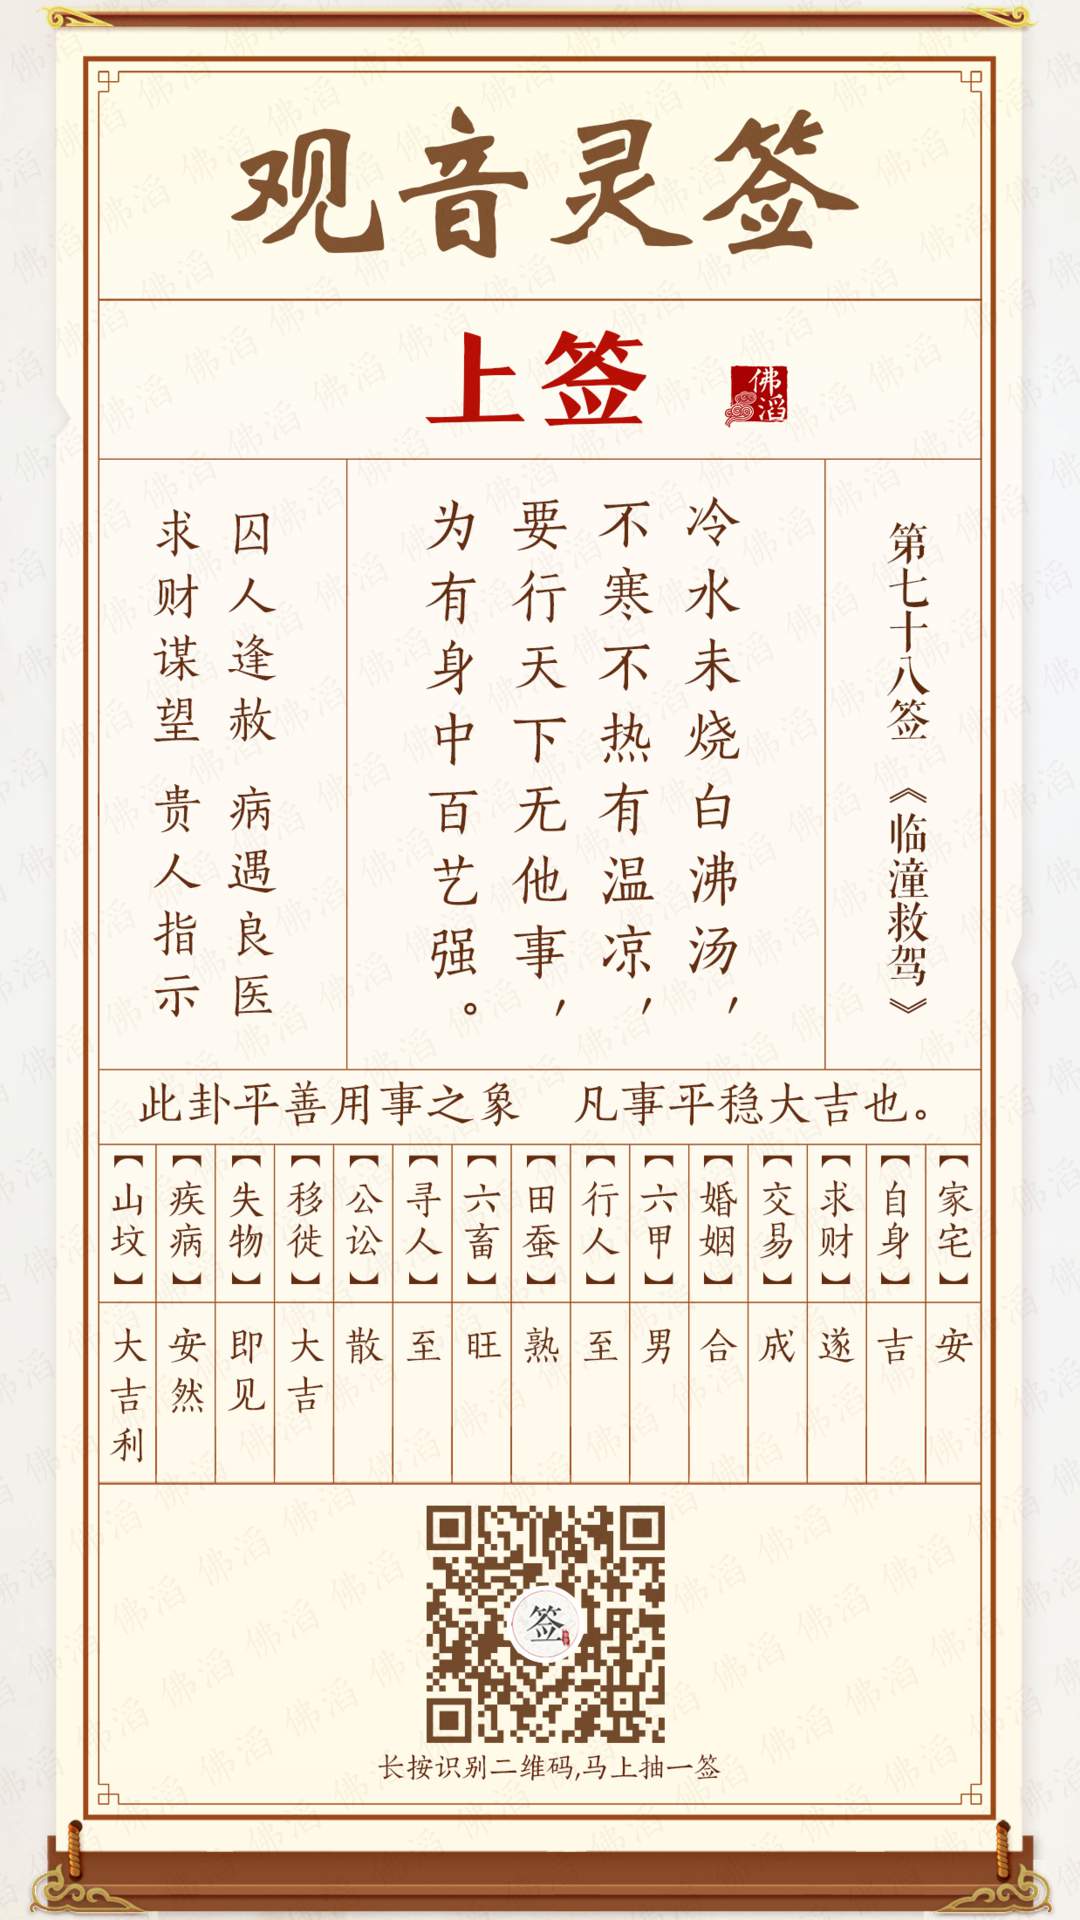 观音灵签
上签
佛滔
第七十八签《临潼救驾》
冷水未烧白沸汤，
不寒不热有温凉，
要行天下无他事，
为有身中百艺强。
囚人逢赦 病遇良医
求财谋望 贵人指示
此卦平善用事之象 凡事平稳大吉也。
【家宅】安
【自身】吉
【求财】遂
【交易】成
【婚姻】合
【六甲】男
【行人】至
【田蚕】熟
【六畜】旺
【寻人】至
【公讼】散
【移徙】大吉
【失物】即见
【疾病】安然
【山坟】大吉利
签
长按识别二维码,马上抽一签